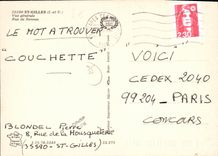 35590 ST-GILLES (I.-et-V.)
Vue générale
Rue de Rennes
LE MOT A TROUVER
"COUCHETTE"
2,30
VOICI
CEDEX 2040
99204 - PARIS
CONCOURS
BLONDEL Pierre
8, Rue de la Mousqueterie
35590 - ST-GILLES